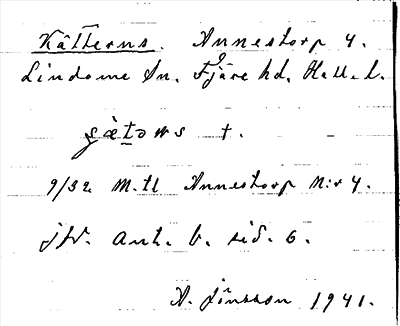 Kätterns. Annestorp 4.
Lindome Sn. Fjäre hd. Hall. l.
gætəns t.
9/32 m.tl Annestorp N:r 4.
jfr. ant. b. sid. 6.
A. Jönsson 1941.